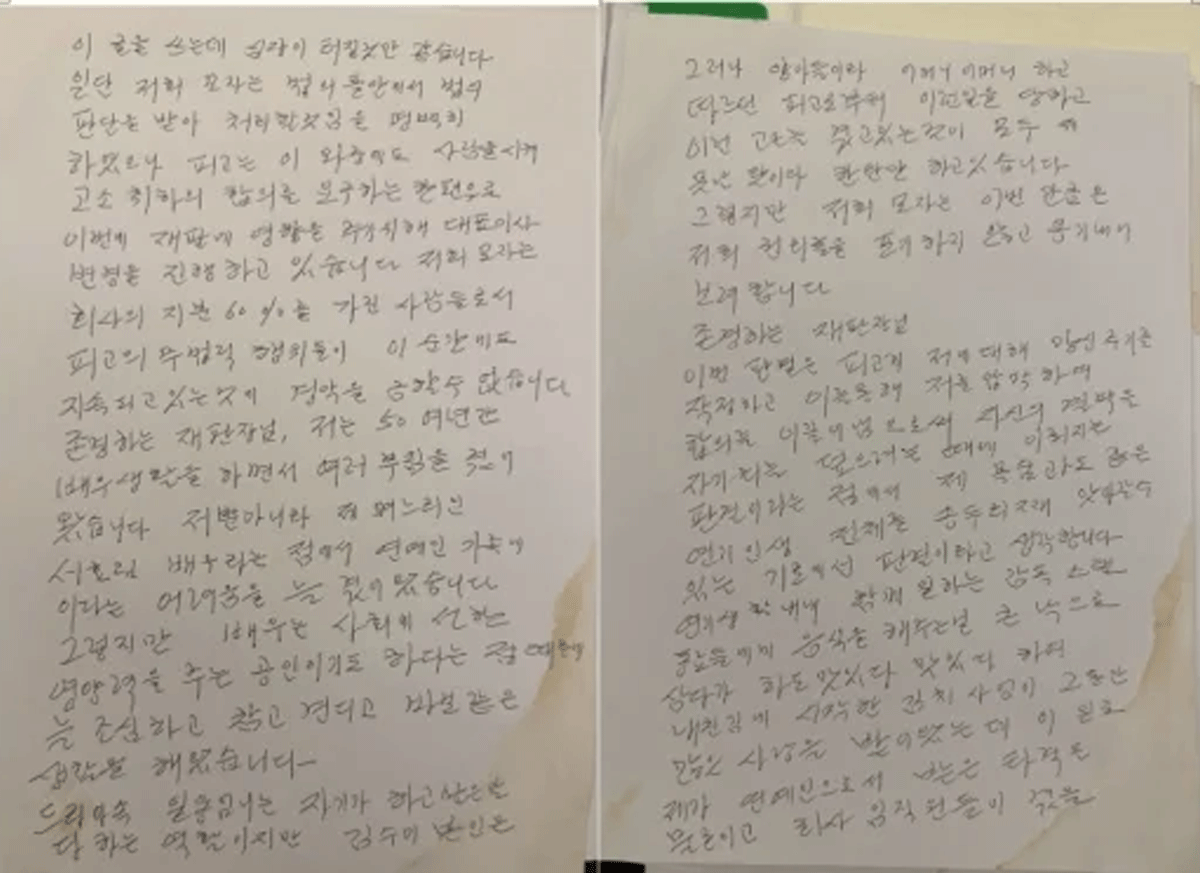 이 글을 쓰는데 심장이 터질것만 같습니다
일단 저희 모자는 법의 틀안에서 법의
판단을 받아 처리할것임을 명백히
하였으나 피고는 이 와중에도 사람을 시켜
고소 취하의 합의를 요구하는 한편으로
이번에 재판에 영향을 주기위해 대표이사
변경을 진행하고 있습니다 저희 모자는
회사의 지분 60%를 가진 사람들로서
피고의 무법적 행위들이 이 순간에도
지속되고 있는것에 경악을 금할수 없습니다
존경하는 재판장님, 저는 50여년간
배우생활을 하면서 여러 부침을 겪어
왔습니다 저뿐아니라 제 며느리인
서효림 배우라는 점에서 연예인 가족
이라는 어려움을 늘 겪어왔습니다
그렇지만 배우는 사회에 선한
영향력을 주는 공인이기도 하다는 점 때문에
늘 조심하고 참고 견디고 바보같은
생활을 해왔습니다
드라마속 일용엄니는 자기가 하고싶은말
다 하는 역할이지만 김수미 본인은
그러나 어머니 어머니 하고
따르던 피고로부터 이런일을 당하고
이런 고난을 겪고있는것이 모두 제
못난 탓이다 한탄만 하고있습니다
그렇지만 저희 모자는 이번 만큼은
저희 권리를 포기하지 않고 이겨내어
보려 합니다
존경하는 재판장님
이번 판결은 피고가 저에 대해 망신주기를
작정하고 이를통해 저를 압박하여
합의를 이끌어냄으로써 자신의 죄를
덮으려는 때에 이뤄지는
판결이라는 점에서 제 목숨과도 같은
연기 인생 전체를 송두리째 앗아갈수
있는 기로에선 판결이라고 생각합니다
연기생활 내내 함께 일하는 감독 스탭
분들에게 음식을 해주는걸 큰 낙으로
삼다가 하도 맛있다 맛있다 하여
내친김에 시작한 김치 사업이 그동안
많은 사랑을 받아왔는데 이 일로
제가 연예인으로서 받은 타격은
물론이고 회사 임직원들이 겪을